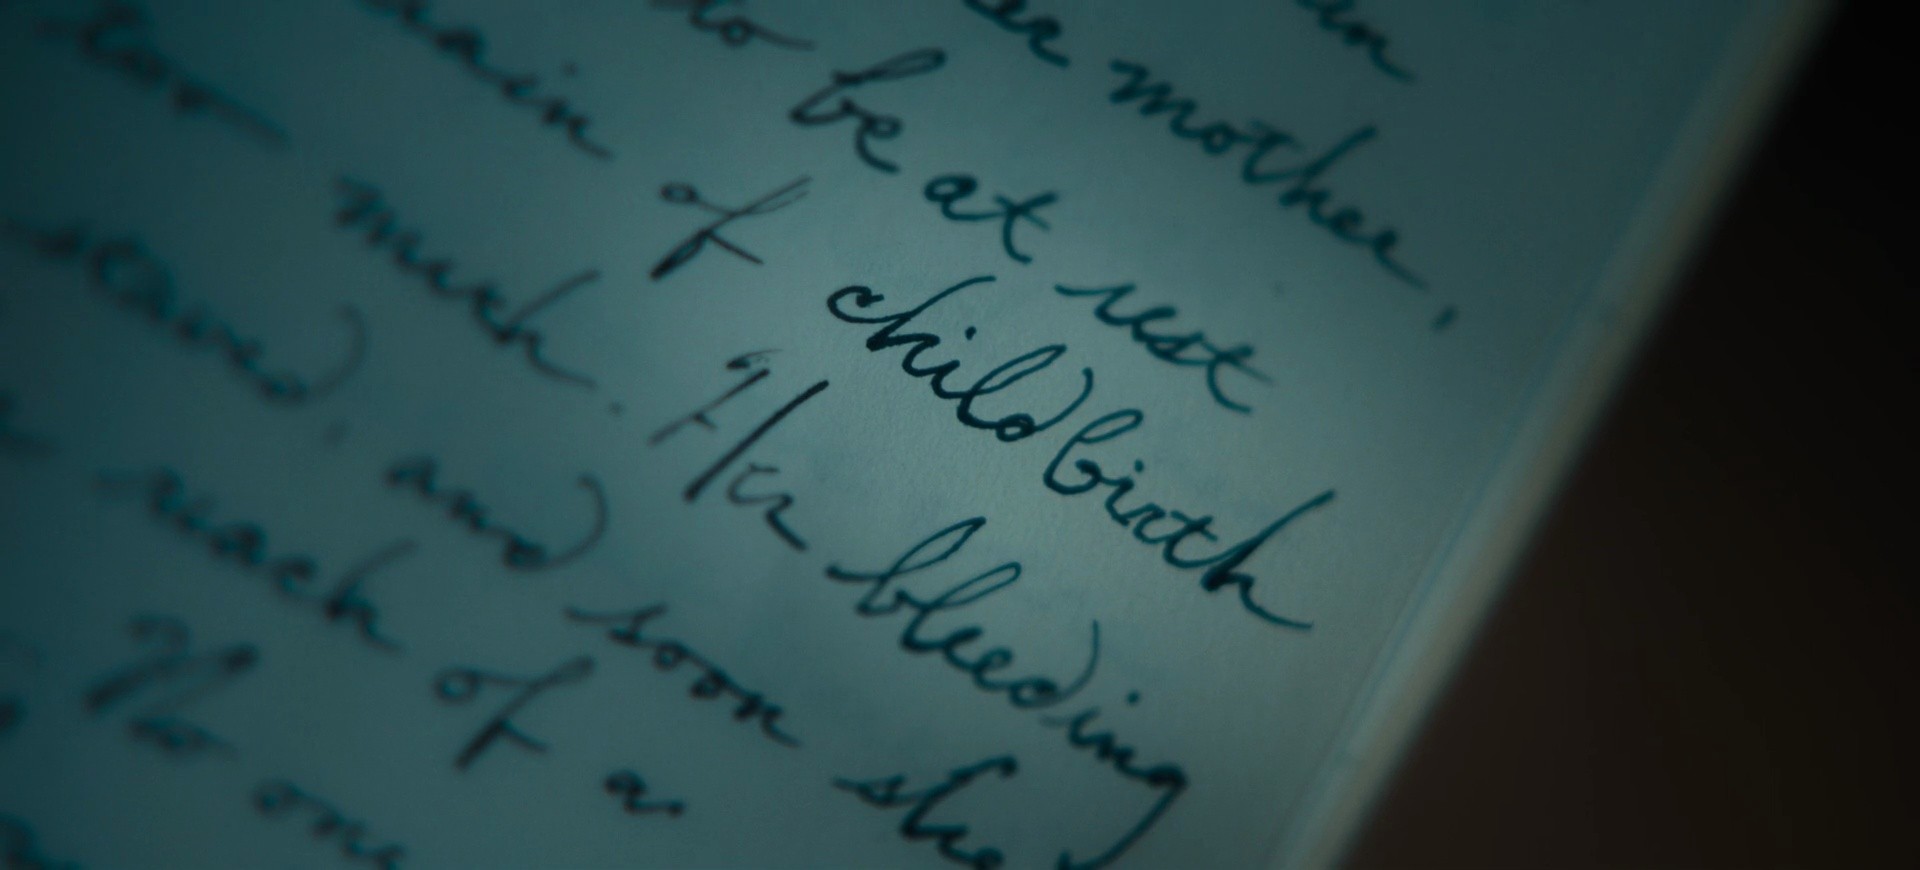 er mother,
to be at rest
of childbirth
too much. Her bleeding
and soon she
reach of a
No one